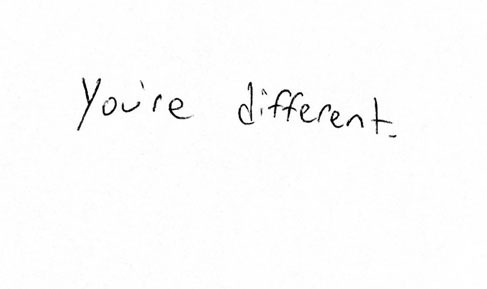 You're different.